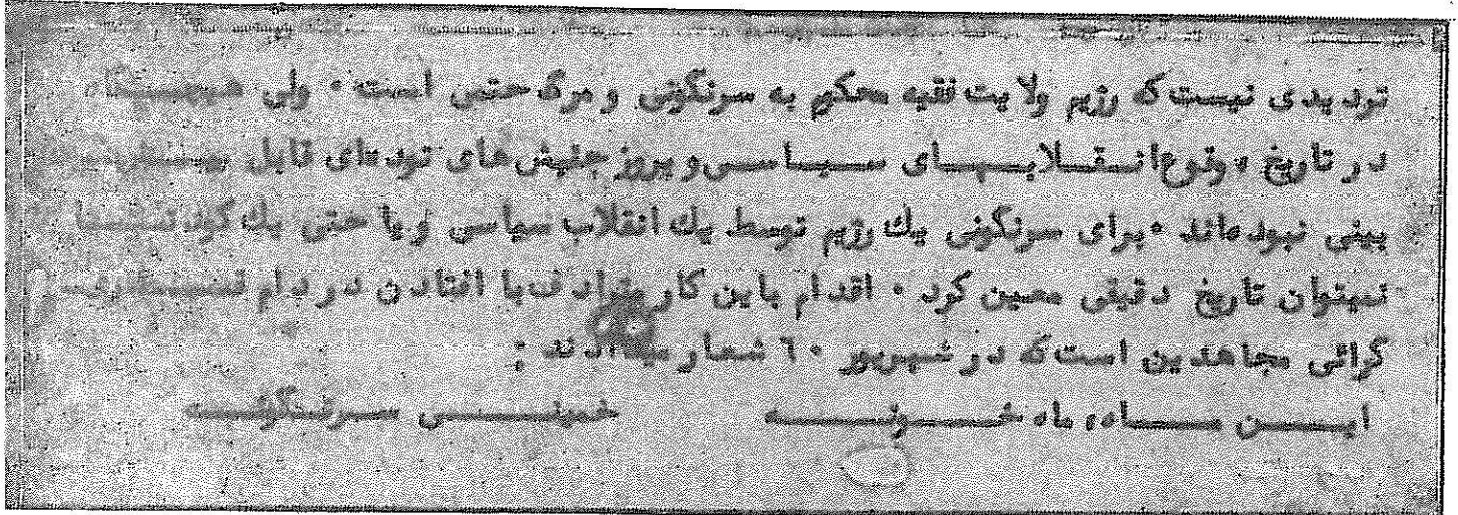 تردیدی نیست که رژیم ولایت فقیه محکوم به سرنگونی و مرگ حتمی است. ولی هیچگاه
در تاریخ، وقوع انقلابهای سیاسی و بروز جنبش‌های توده‌ای قابل پیش
بینی نبوده‌اند. برای سرنگونی یک رژیم توسط یک انقلاب سیاسی و یا حتی یک کودتا
نمیتوان تاریخ دقیقی معین کرد. اقدام باین کار مترادف با افتادن در دام
گرائی مجاهدین است که در شهریور ۶۰ شعار میدادند:
ایـــن مـــاه، ماه خـــونـــه خمینـــی سرنگونـــه